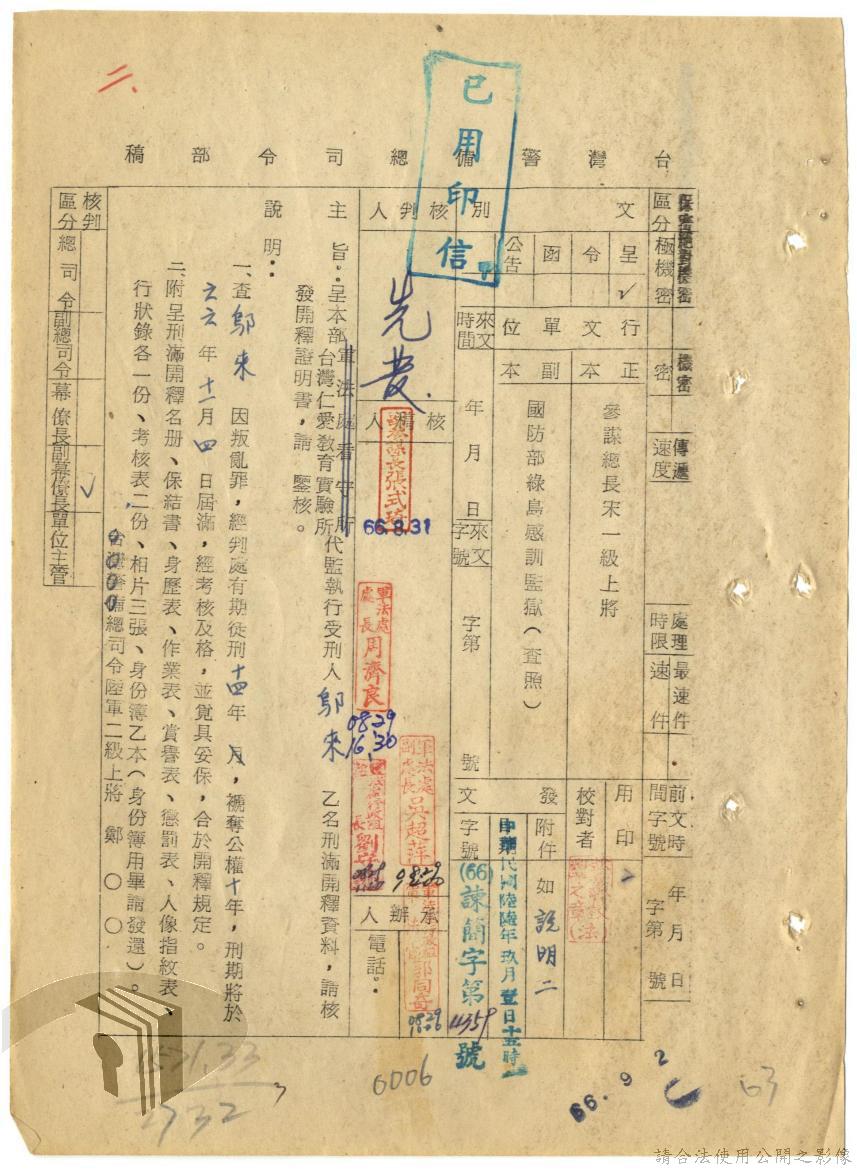 二、
已用印信
台灣警備總司令部稿
區分
極機密
密
機密
傳遞速度
處理時限
最速件
速件
前文時間字號
年月日
字第 號
文別
呈
令
函
公告
✓
行文單位
正本
參謀總長宋一級上將
副本
國防部綠島感訓監獄(查照)
來文時間
年 月 日
來文字號
字第 號
用印
校對者
發文
附件
如說明二
中華民國陸陸年玖月壹日十五時
字號
(66)諫簡字第11359號
核判人
先發
核稿人
66.8.31
軍法處處長周濟良
0829
1630
軍法處副處長吳超萍
承辦人
電話:
主旨:呈本部軍法處看守所台灣仁愛教育實驗所代監執行受刑人鄔來 乙名刑滿開釋資料,請核
發開釋證明書,請 鑒核。
說明:
一、查鄔來 因叛亂罪,經判處有期徒刑十四年 月,褫奪公權十年,刑期將於
六六年十一月四日屆滿,經考核及格,並覓具妥保,合於開釋規定。
二、附呈刑滿開釋名册、保結書、身歷表、作業表、賞譽表、懲罰表、人像指紋表、
行狀錄各一份、考核表二份、相片三張、身份簿乙本(身份簿用畢請發還)。
台灣警備總司令陸軍二級上將 鄭〇〇
核判區分
總司令
副總司令
幕僚長
副幕僚長
✓
單位主管
1571.33
1732
0006
66.9.2
63
請合法使用公開之影像